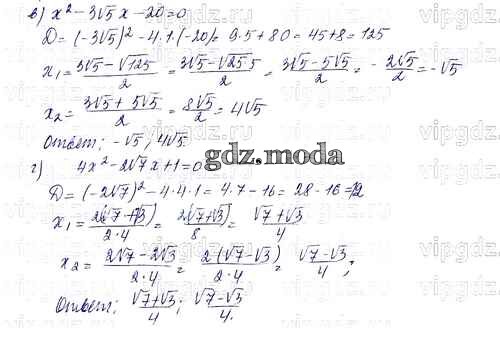 в) x² - 3√5 x - 20 = 0
D = (-3√5)² - 4·1·(-20) = 9·5 + 80 = 45 + 8 = 125
x₁ = (3√5 - √125)/2 = (3√5 - √25·5)/2 = (3√5 - 5√5)/2 = - 2√5/2 = -√5
x₂ = (3√5 + 5√5)/2 = 8√5/2 = 4√5
Ответ: -√5; 4√5.
gdz.moda
г) 4x² - 2√7 x + 1 = 0
D = (-2√7)² - 4·4·1 = 4·7 - 16 = 28 - 16 = 12
x₁ = 2(√7 + √3)/(2·4) = 2(√7 + √3)/8 = (√7 + √3)/4
x₂ = (2√7 - 2√3)/(2·4) = 2(√7 - √3)/(2·4) = (√7 - √3)/4;
Ответ: (√7 + √3)/4; (√7 - √3)/4.